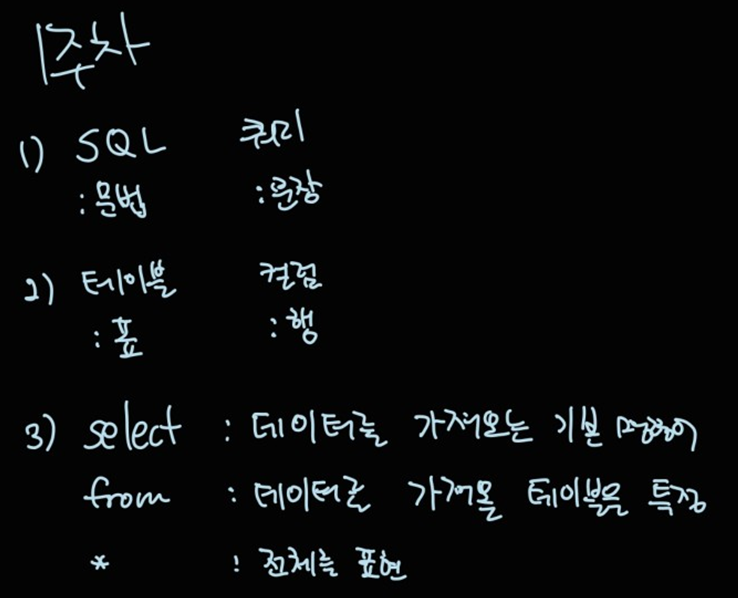 1주차
1) SQL 쿼리
:문법 :문장
2) 테이블 컬럼
:표 :행
3) select : 데이터를 가져오는 기본 명령어
from : 데이터를 가져올 테이블을 특정
* : 전체를 표현